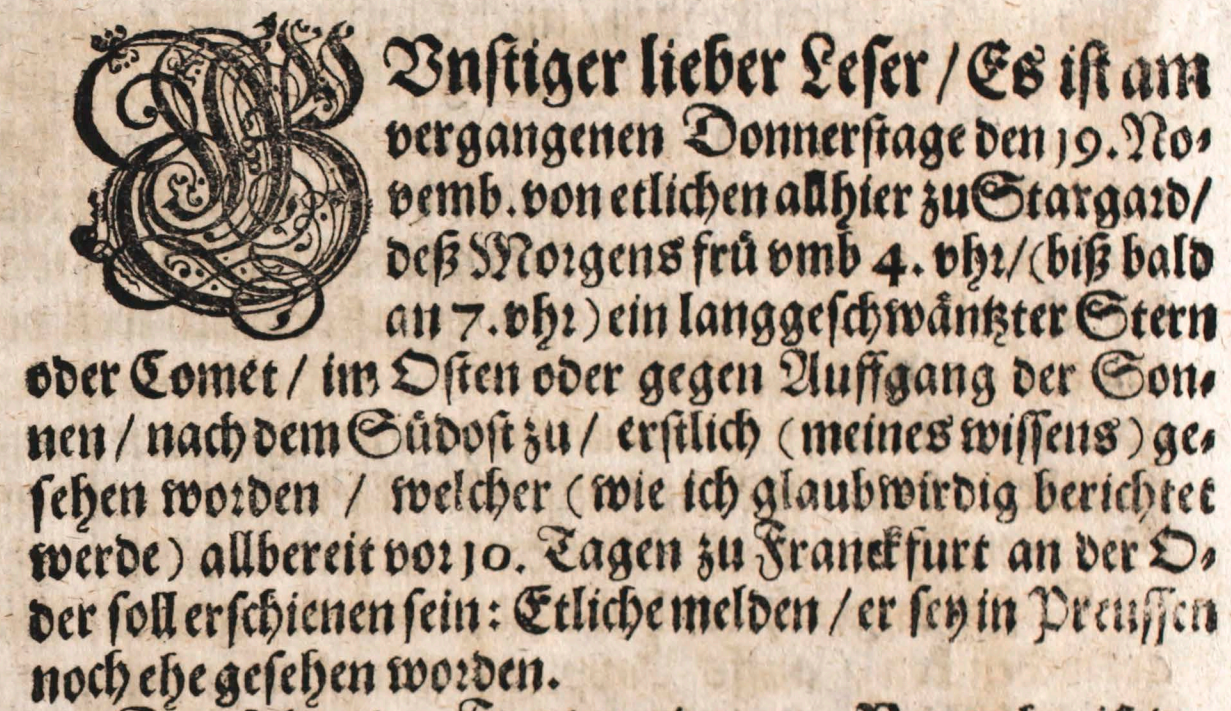 GVnſtiger lieber Leſer / Es iſt am
vergangenen Donnerſtage den 19. No⸗
vemb. von etlichen allhier zu Stargard /
deß Morgens frü vmb 4. vhr / (biß bald
an 7. vhr) ein langgeſchwäntzter Stern
oder Comet / im Oſten oder gegen Auffgang der Son⸗
nen / nach dem Südoſt zu / erſtlich (meines wiſſens) ge⸗
ſehen worden / welcher (wie ich glaubwirdig berichtet
werde) allbereit vor 10. Tagen zu Franckfurt an der O⸗
der ſoll erſchienen ſein: Etliche melden / er ſey in Preuſſen
noch ehe geſehen worden.